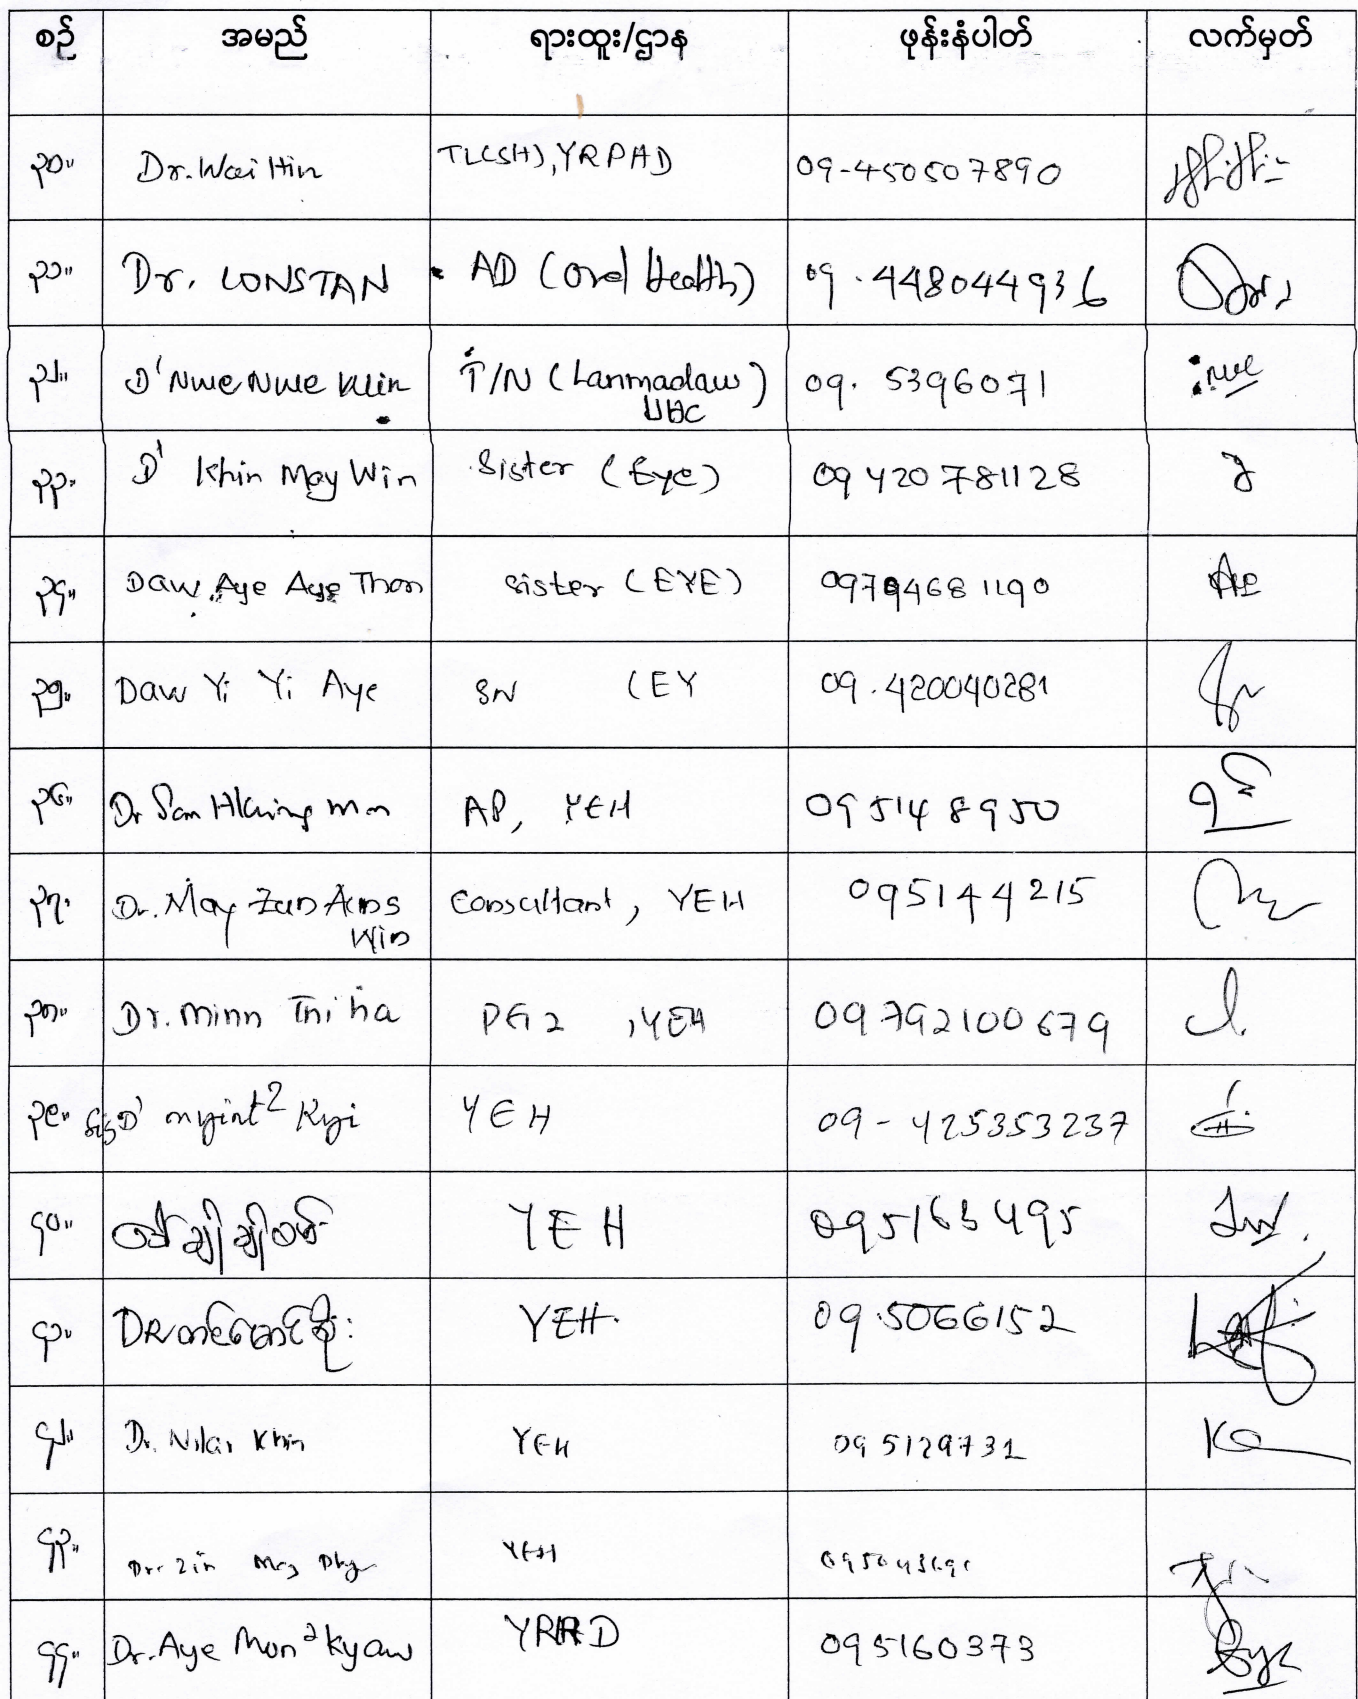 စဉ် အမည် ရာထူး/ဌာန ဖုန်းနံပါတ် လက်မှတ်
၃၀။ Dr. Wai Hin TL(SH), YRPHD 09-450507890
၃၁။ Dr. LONSTAN AD (Oral Health) 09.448044936
၃၂။ D' Nwe Nwe Win T/N (Lanmadaw) 09. 5396071
UHC
၃၃။ D' Khin May Win Sister (Eye) 09 420 781128
၃၄။ Daw Aye Aye Thon sister (EYE)
၃၅။ Daw Yi Yi Aye SN (EY 09.420040281
၃၆။ Dr San Hlaing AP, YEH 09 5148950
၃၇။ Dr. May Zun Aung Consultant, YEH 095144215
Win
၃၈။ Dr. Minn Thiha PG2 , YEH 09 792100679
၃၉။ D' myint² Kyi YEH 09-425353237
၄၀။ ဒေါ်ချိုချိုဝမ်း YEH 095163495
၄၁။ DR တင်မောင်စိုး YEH. 09.5066152
၄၂။ Dr. Nilar Khin YEH 09 5129731
၄၃။ Dr. Zin May YEH
၄၄။ Dr. Aye Mon² Kyaw 095160373